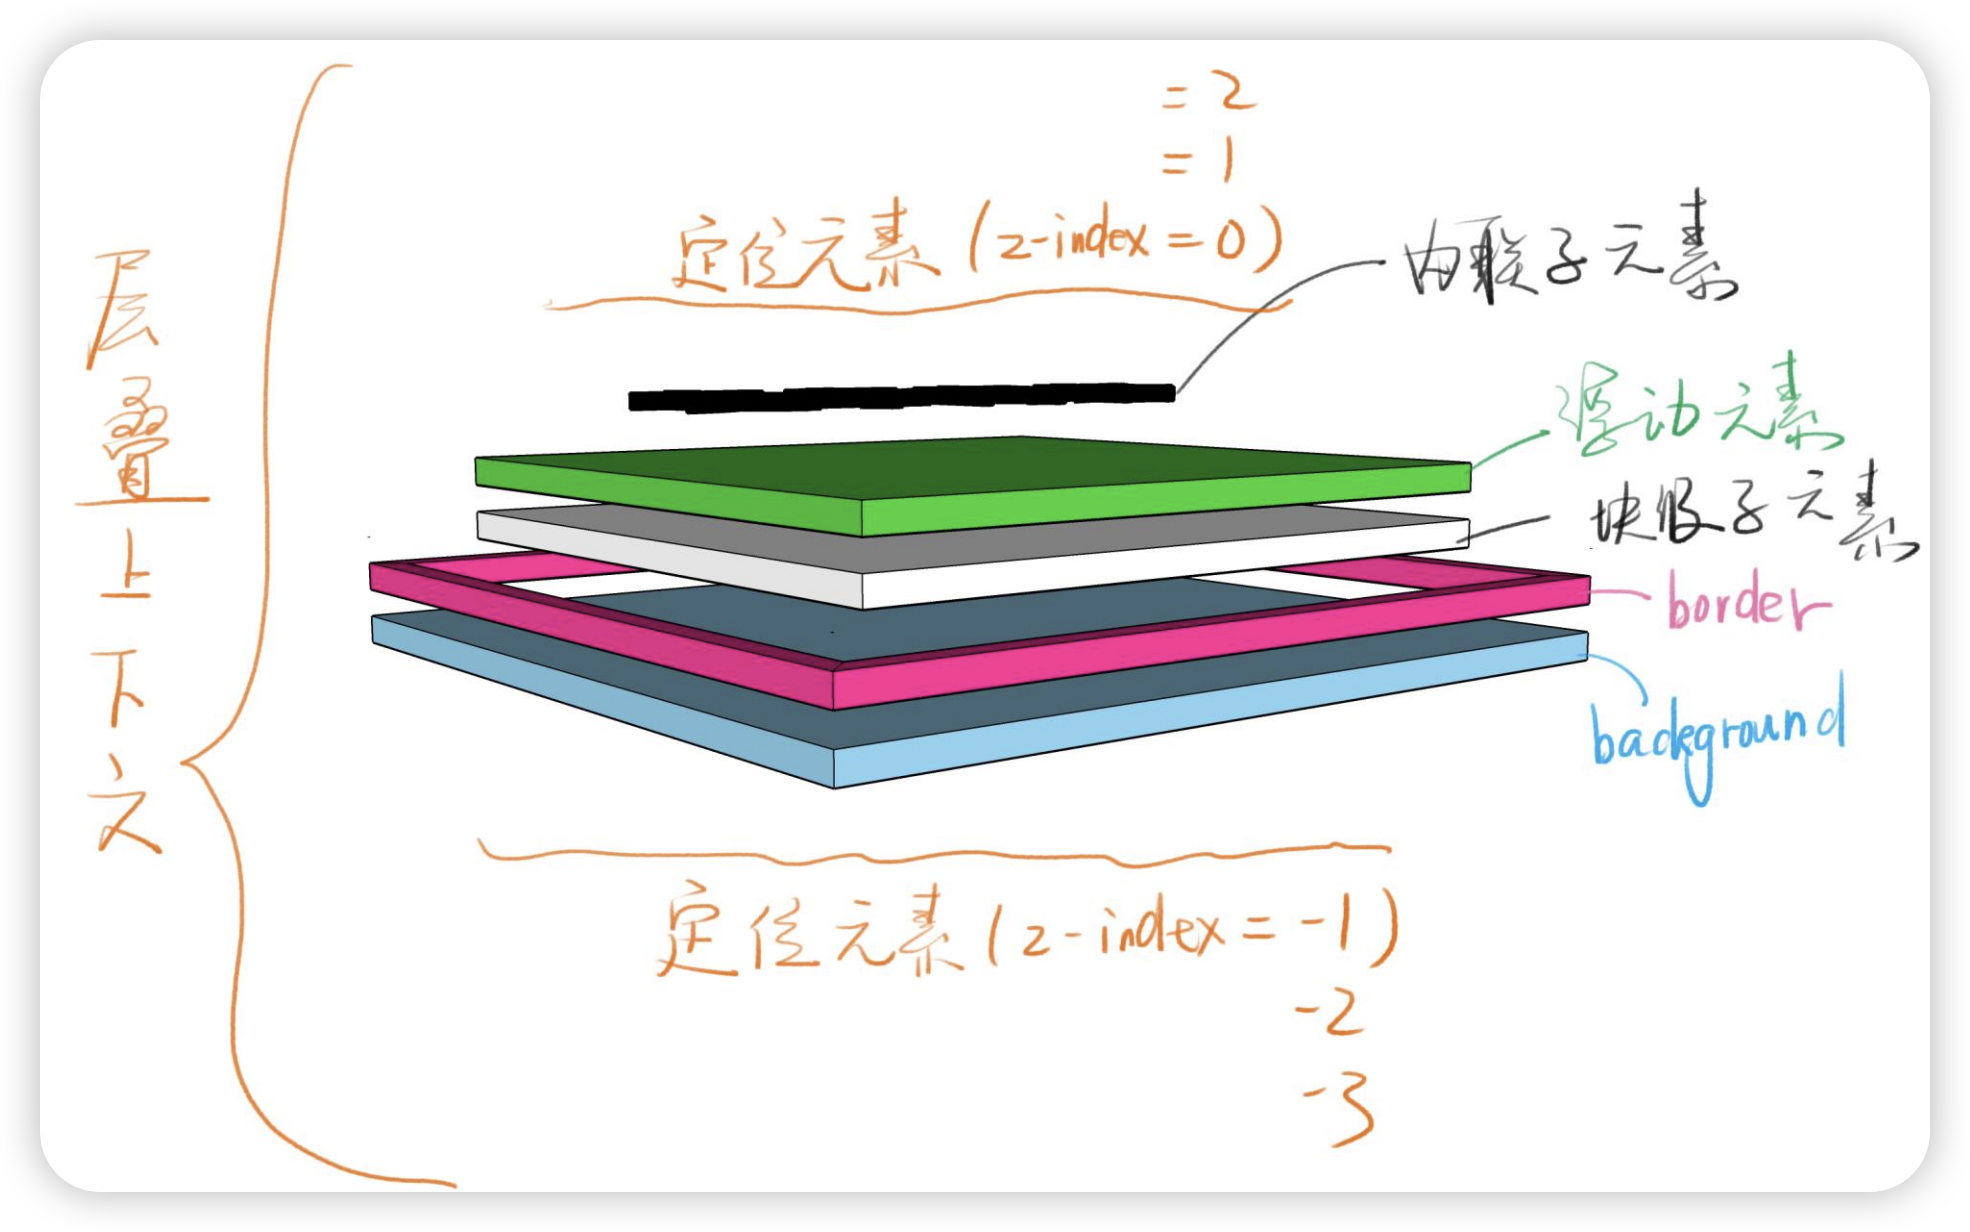 层叠上下文
= 2
= 1
定位元素 (z-index = 0)
内联子元素
浮动元素
块级子元素
border
background
定位元素 (z-index = -1)
-2
-3